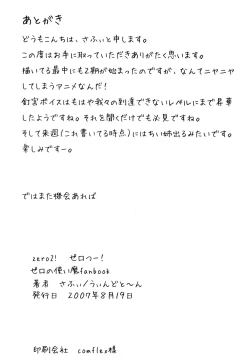 あとがき
どうもこんちは、さふぃと申します。
この度はお手に取っていただきありがたく思います。
描いてる最中にも2期が始まったのですが、なんてニヤニヤ
してしまうアニメなんだ!
釘宮ボイスはもはや我々の到達できないレベルにまで昇華
したようですね。それを聞くだけでも必見ですね。
そして来週(これ書いてる時点)にはちい姉出るみたいです。
楽しみですー。
ではまた機会あれば
zero2! ゼロつー!
ゼロの使い魔fanbook
著者 さふぃ/うぃんどと〜ん
発行日 2007年8月19日
印刷会社 comflex様